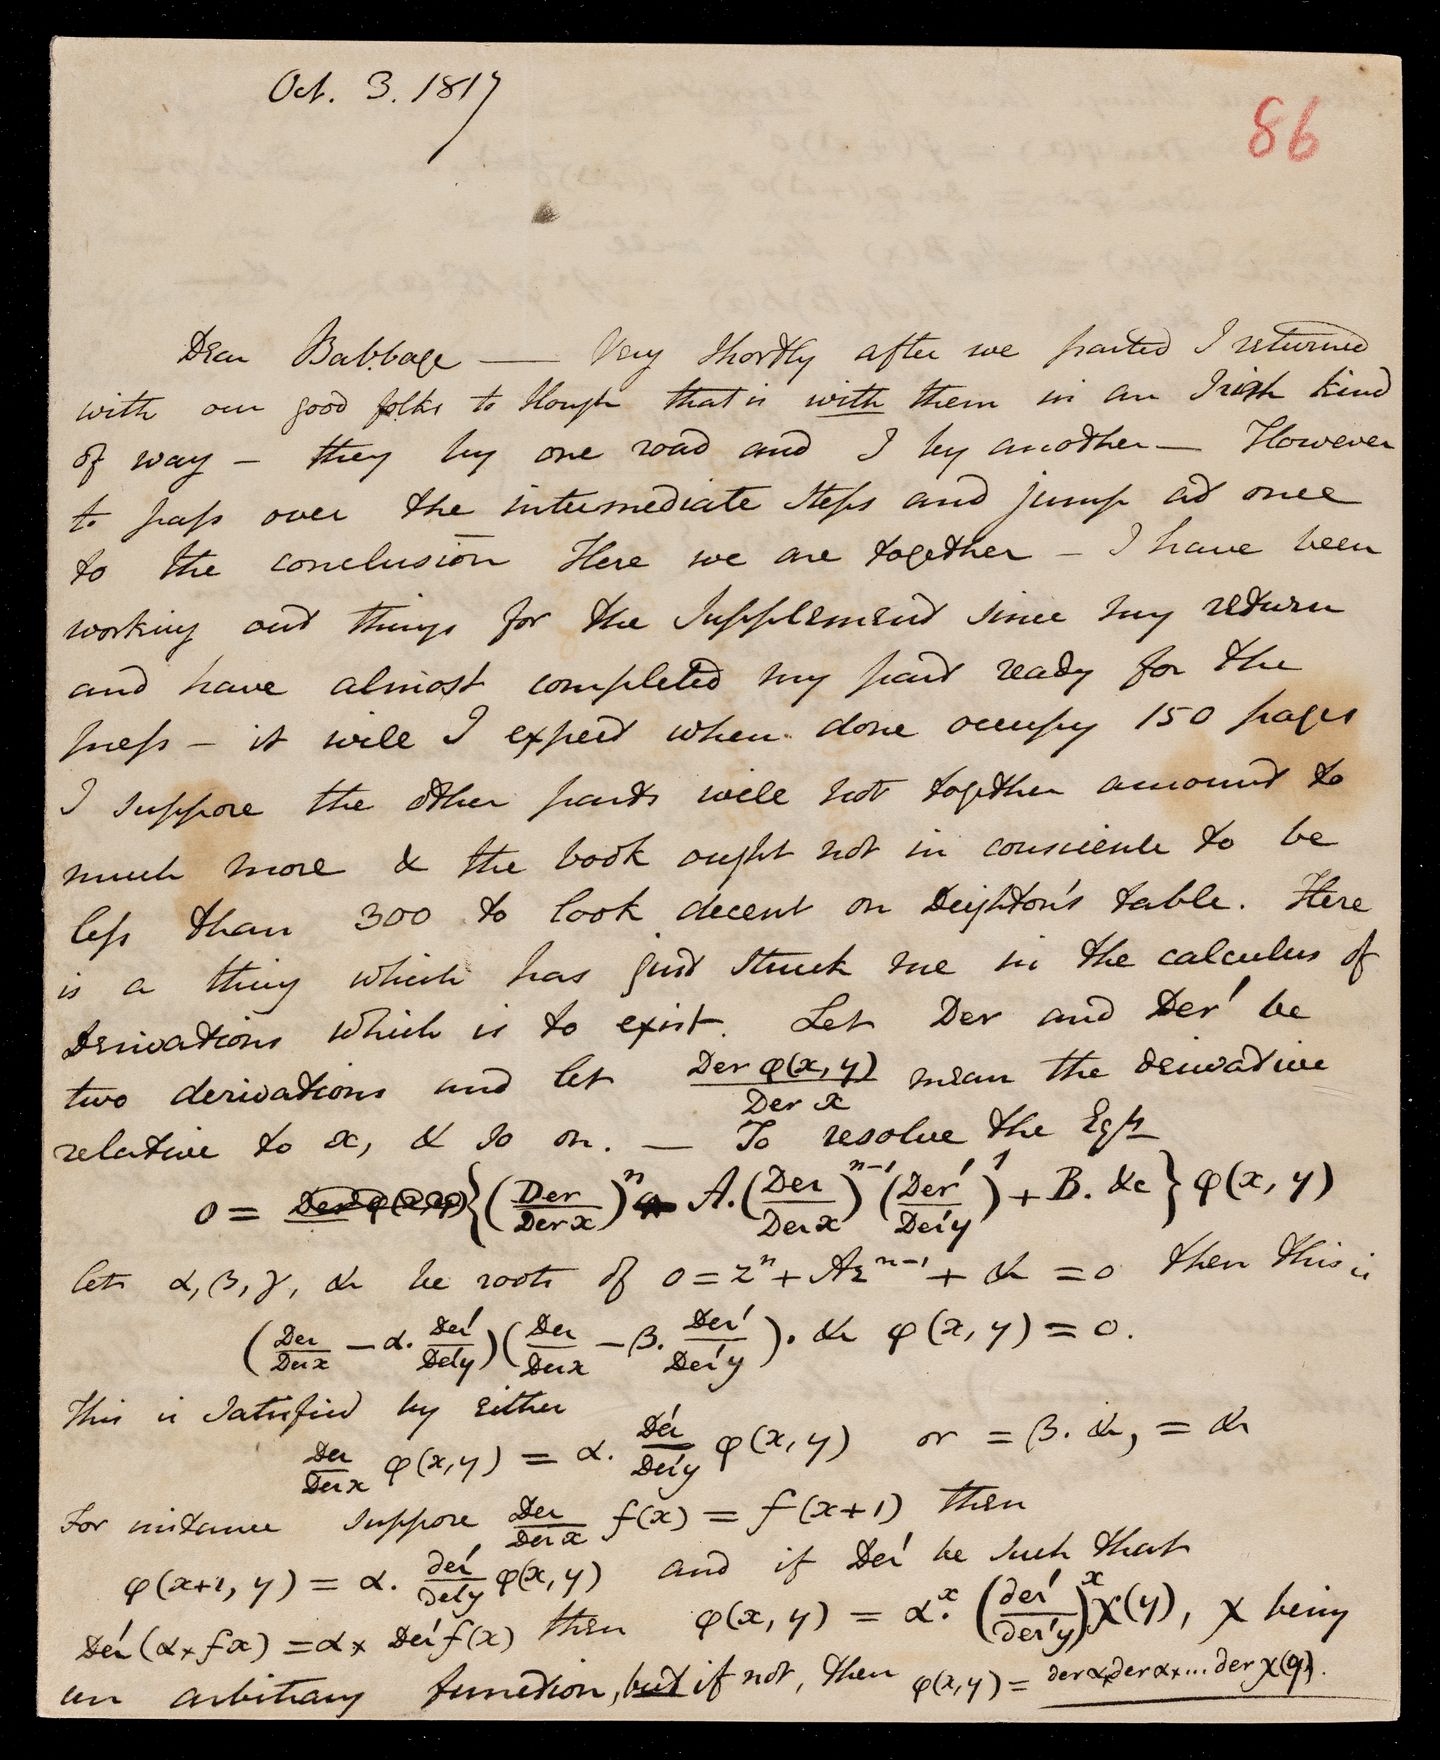 Oct. 3. 1817
86
Dear Babbage — Very shortly after we parted I returned
with our good folks to Slough that is with them in an Irish kind
of way – they by one road and I by another — However
to pass over the intermediate steps and jump at once
to the conclusion Here we are together – I have been
working out things for the Supplement since my return
and have almost completed my part ready for the
press – it will I expect when done occupy 150 pages
I suppose the other parts will not together amount to
much more & the book ought not in conscience to be
less than 300 to look decent on Deighton's table. Here
is a thing which has just struck me in the calculus of
Derivations which is to exist. Let Der and Der′ be
two derivations and let Der φ(x, y)/Der x mean the derivative
relative to x, & so on. — To resolve the Eqn
0 = {(Der/Der x)^n + A.(Der/Der x)^n-1 (Der′/Der′y)^1 + B. &c} φ(x, y)
let α, β, γ, &c be roots of 0 = z^n + Az^n-1 + &c = 0 then this is
(Der/Der x − α. Der′/Der′y)(Der/Der x − β. Der′/Der′y). &c φ(x, y) = 0.
This is satisfied by either
Der/Der x φ(x, y) = α. Der′/Der′y φ(x, y) or = β. &c, = &c
For instance suppose Der/Der x f(x) = f(x+1) then
φ(x+1, y) = α. der′/der′y φ(x, y) and if Der′ be such that
Der′(α × fx) = α × Der′f(x) then φ(x, y) = α^x. (der′/der′y)^x χ(y), χ being
an arbitrary function, but if not, then φ(x, y) = der α × der α × ... der χ(y).